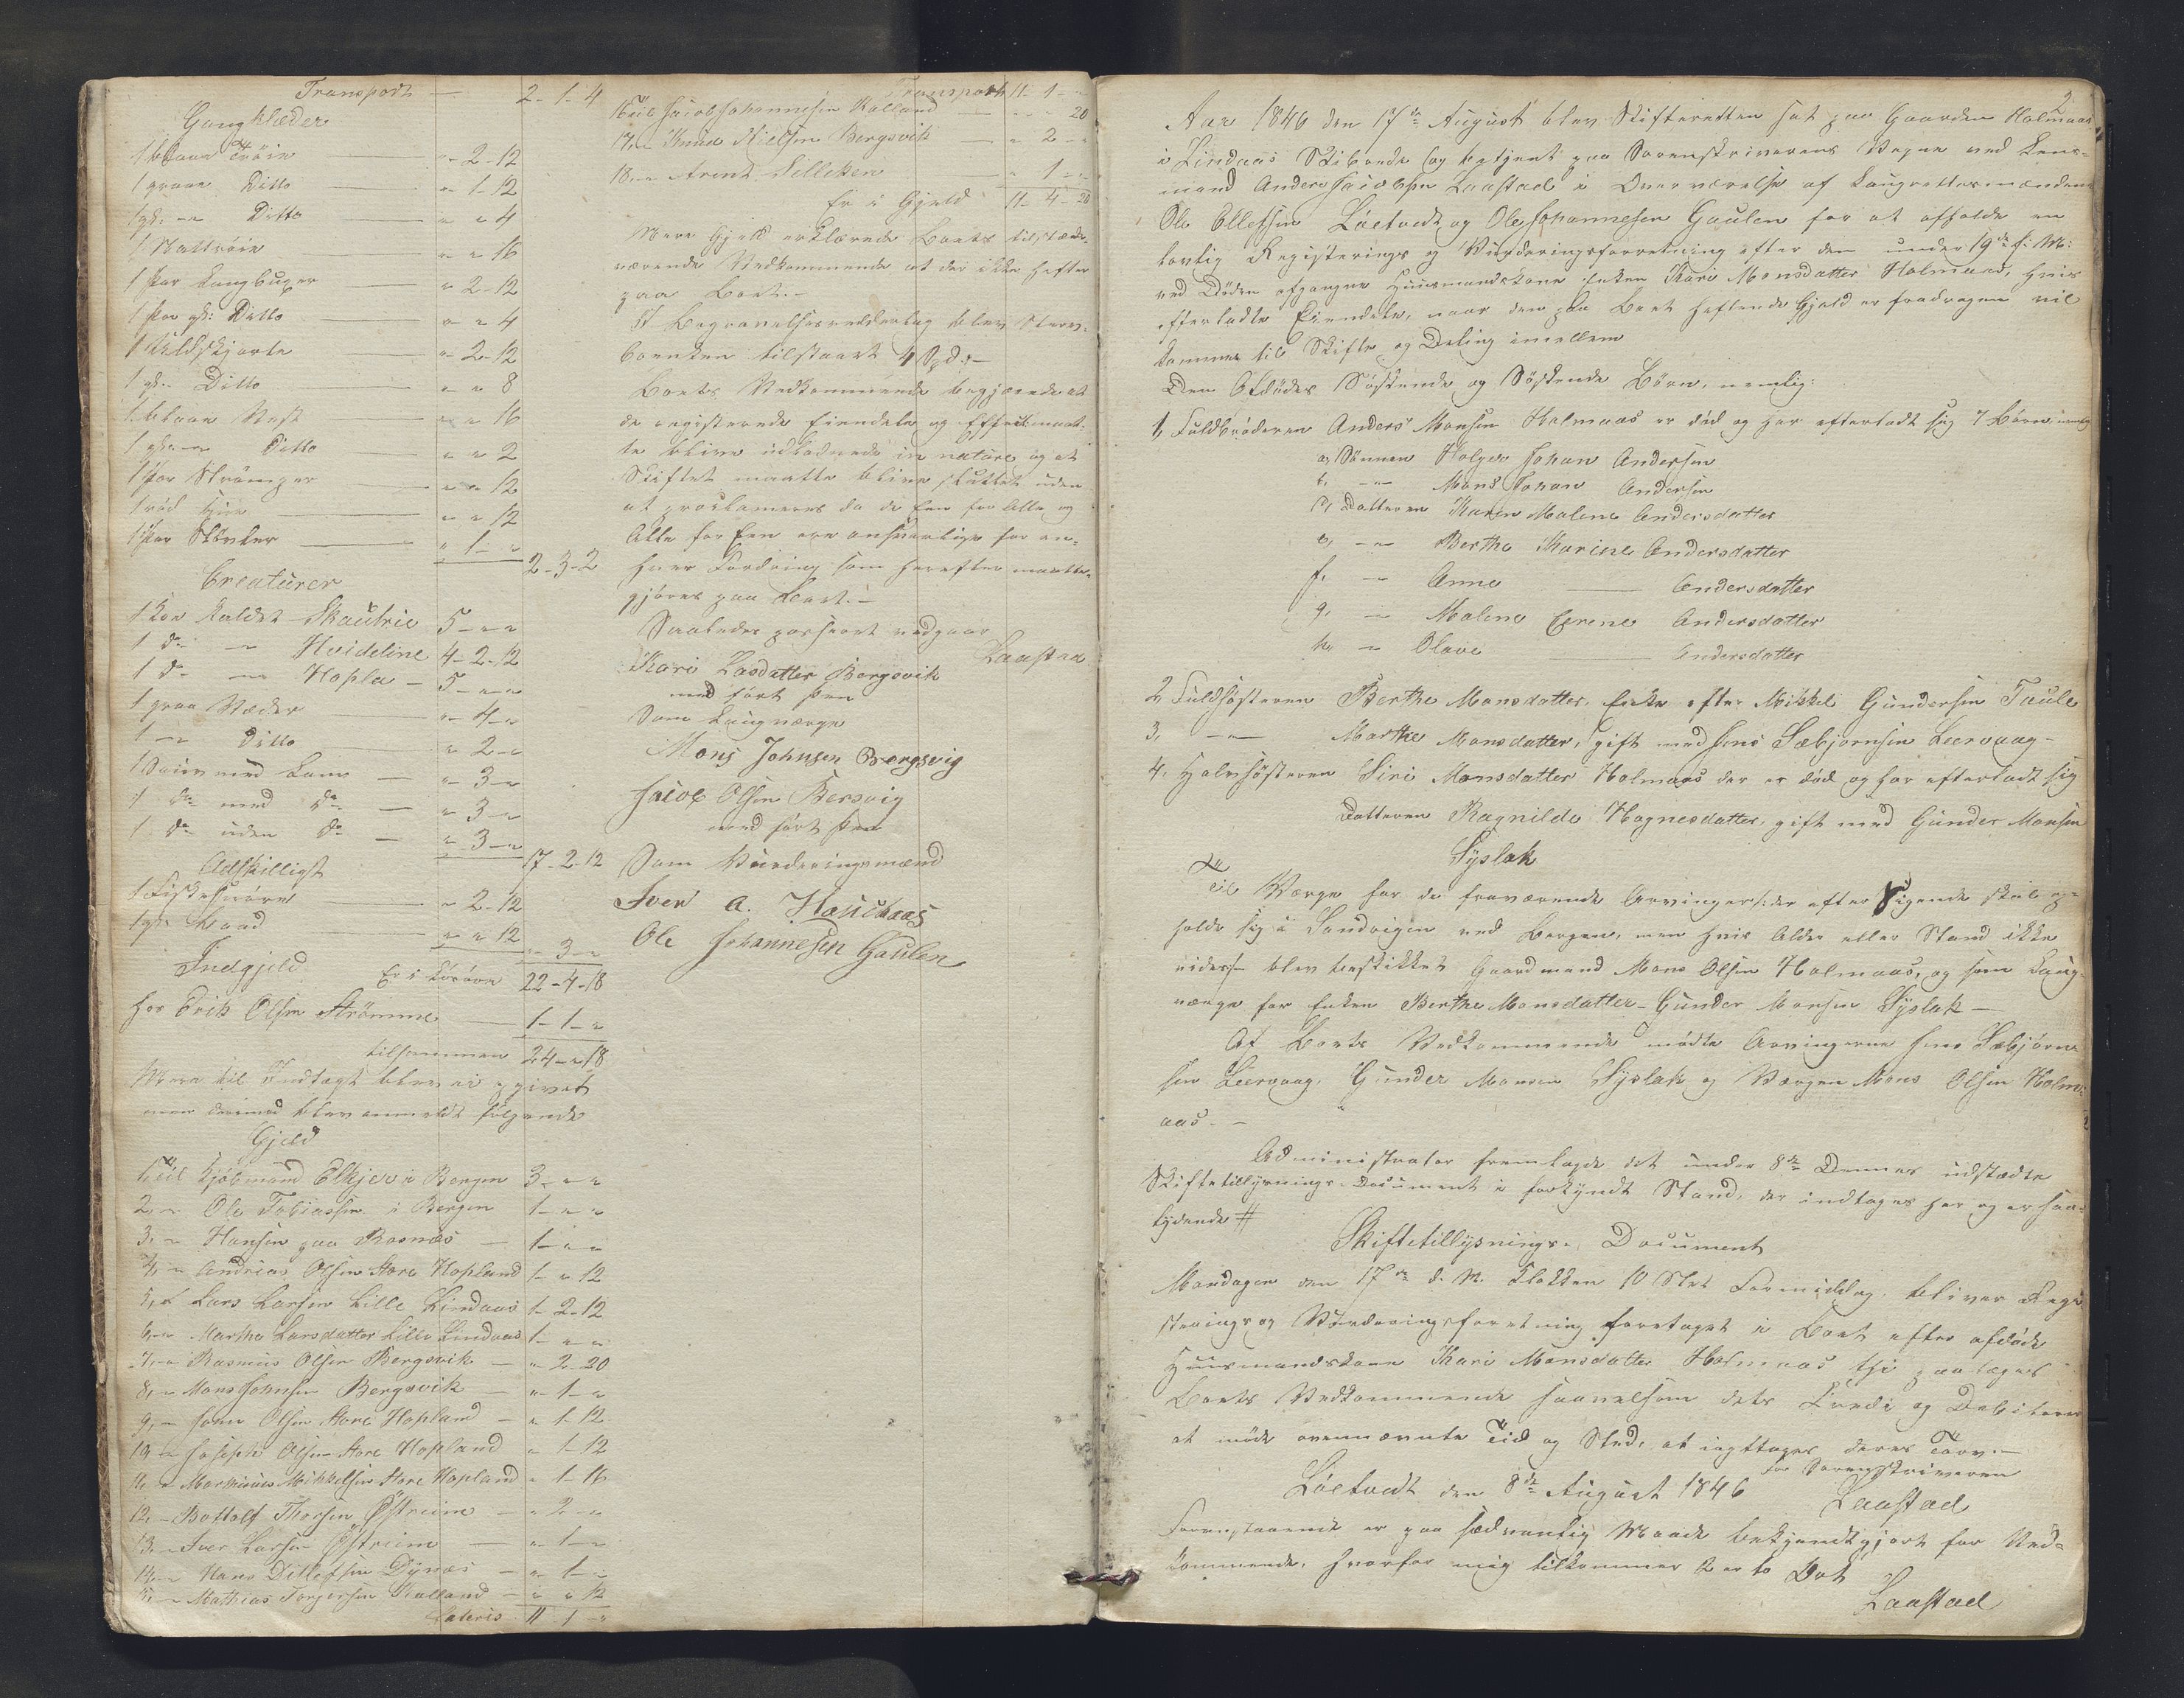 Transport — 2-1-4
Gangklæder
1 blaae Trøie — " 2-12
1 graae Ditto — " 1-12
1 gl: — Ditto — " " 4
1 Nattrøie — " " 16
1 Par Langbuxer — " 2-12
1 Par gl: Ditto — " " 4
1 Uldskjorte — " 2-12
1 gl: Ditto — " " 8
1 blaae Vest — " " 16
1 gl: — Ditto — " " 2
1 Par Strømper — " " 12
1 rød — " " 12
1 Par Støvler — " 1 - " 2-3-2
Creaturer
1 Koe kaldet Skautrie 5 - " "
1 do — Hvideline 4-2-12
1 do — Hopla — 5 - " "
1 graa Væder — " 4 - "
1 — Ditto — " 2 - "
1 Souv med Lam — " 3 - "
1 do med do — " 3 - "
1 do uden do — " 3 - " 17-2-12
Adskilligt
1 Fiskesnøre — " 2-12
1 gl: — " " 12 " 3 - "
Er i Løsøre 22-4-18
Indgjeld
hos Erik Olsen Strømme — 1-1- "
tilsammen 24 - " 18
Mere til Indtægt blev ei opgivet
men derimod blev anmeldt følgende
Gjeld
1, til Kjøbmand Elkjer i Bergen 3 - " "
2, " Ole Tobiassen i Bergen 1 - " "
3, " Hansen paa Rosnæs — 1 - " "
4, " Andreas Olsen Store Hopland 1 - " 12
5, " Lars Larsen Lille Lindaas 1-2-12
6, " Marthe Larsdatter Lille Lindaas 1 - " "
7, " Rasmus Olsen Bergsvik — " 2-20
8, " Mons Johnsen Bergsvik — " 1 - "
9, " Olsen Store Hopland — " 1-12
10, " Joseph Olsen Store Hopland " 1-12
11, " Markuus Mikkelsen Store Hopland " 1-16
12, " Bottolf Thorsen Østreim — " 2 - "
13, " Iver Larsen Østreim — " 1 - "
14, " Hans Ditlefsen Dynæs — " 1 - "
15, " Mathias Torgersen Kolland — " " 12
Lateris 11-1- "
Transport 11-1- "
16, til Jacob Johannesen Kolland — " " 20
17, " Knud Nielsen Bergsvik — " 2 - "
18, " Arent Silleken — " 1 - "
Er i Gjeld 11-4-20
Mere Gjeld erklærede Boets tilstæde-
værende Vedkommende at der ikke hefter
paa Boet. —
Til Begravelsesvederlag blev Sterv-
boenken tilstaaet 4 Spd: —
Boets Vedkommende begjærede at
de registerede Eiendele og Effecter maat-
te blive udlodnede in natura og at
Skiftet maatte blive sluttet uden
at proclameres da de Een for Alle og
Alle for Een ere ansvarlige for en-
hver Fordring som herefter maatte
gjøres paa Boet. —
Saaledes passeret vedgaar
Laastad
Kari Lasdatter Bergsvik
med ført Pen
Som Laugværge
Mons Johnsen Bergsvig
Jacob Olsen Bersvig
med ført Pen
Som Vurderingsmænd
Iver A. Hauchaas
Ole Johannesen Gaulen
2
Aar 1846 den 17de August blev Skifteretten sat paa Gaarden Holmaas
i Lindaas Skibrede og betjent paa Sorenskriverens Vegne ved Lens-
mand Anders Jacobsen Laastad i Overværelse af Laugrettesmændene
Ole Ellefsen Løetvedt og Ole Johannesen Gaulen for at afholde en
lovlig Registerings og Vurderingsforretning efter den under 19de f. M:
ved Døden afgangne Huusmandskone Enken Kari Monsdatter Holmaas, hvis
efterladte Eiendele, naar den paa Boet heftende Gjeld er fradragen vil
komme til Skifte og Deling imellem
Den Afdødes Søskende og Søskende Børn, nemlig:
1, Fuldbroderen Anders Monsen Holmaas er død og har efterladt sig 7 Børn nemlig
a, Sønnen Holger Johan Andersen
b, — Mons Johan Andersen
c, Datteren Karen Malene Andersdatter
e, — Berthe Karine Andersdatter
f, — Anne — Andersdatter
g, — Malene Grene Andersdatter
h, — Olave — Andersdatter
2, Fuldsøsteren Berthe Monsdatter, Enke efter Mikkel Gundersen Taule
3, — Marthe Monsdatter, gift med Jens Sæbjørnsen Leervaag -
4, Halvsøsteren Siri Monsdatter Holmaas der er død og har efterladt sig
Datteren Ragnilde Hagnesdatter, gift med Gunder Monsen
Syslak
Til Værge for de fraværende Arvinger der efter Sigende skal op-
holde sig i Sandvigen ved Bergen, men hvis Alder eller Stand ikke
vides, blev beskikket Gaardmand Mons Olsen Holmaas, og som Laug-
værge for Enken Berthe Monsdatter — Gunder Monsen Syslak —
Af Boets Vedkommende mødte Arvingerne Jens Sæbjørn-
sen Leervaag, Gunder Monsen Syslak og Værgen Mons Olsen Holm-
aas. —
Administrator fremlagde det under 8de Dennes udstædte
Skiftetillysnings-Document i forkyndt Stand, der indtages her og er saa-
lydende #
Skiftetillysnings-Document
Mandagen den 17de d. M. Klokken 10 Slet Formiddag, bliver Regi-
sterings og Vurderingsforretning foretaget i Boet efter afdøde
Huusmandskone Kari Monsdatter Holmaas thi paalægges
Boets Vedkommende saavelsom dets Credi og Debitorer
at møde ovennævnte Tid og Sted, at iagttages deres Tarv. —
Løetvedt den 8de August 1846
For Sorenskriveren
Laastad
Foranstaaende er paa sædvanlig Maade bekjendtgjort for Ved-
kommende, hvorfor mig tilkommer 2 er to Ort
Laastad